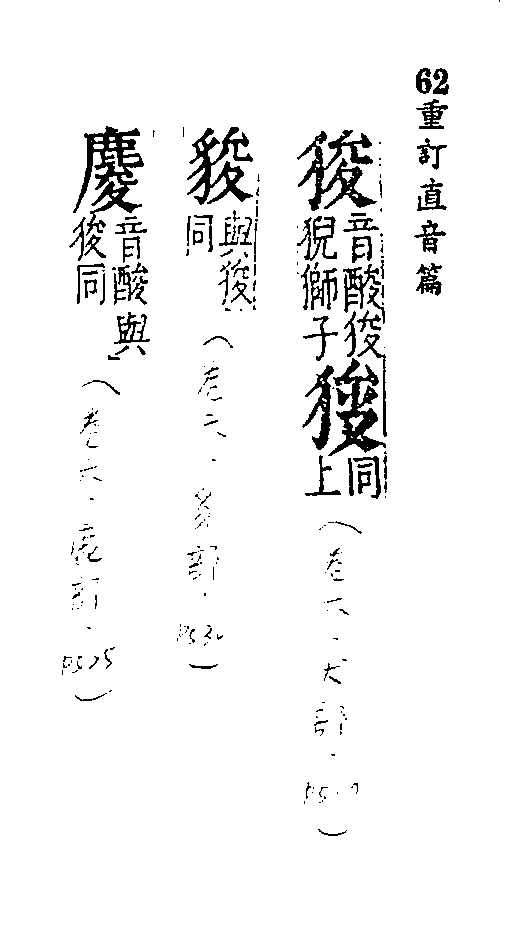 62重訂直音篇
狻音酸狻猊獅子𤠗同上
（卷六．犬部．
貑與狻同
（卷六．豸部．P530）
麌音酸與狻同
（卷六．鹿部．P525）